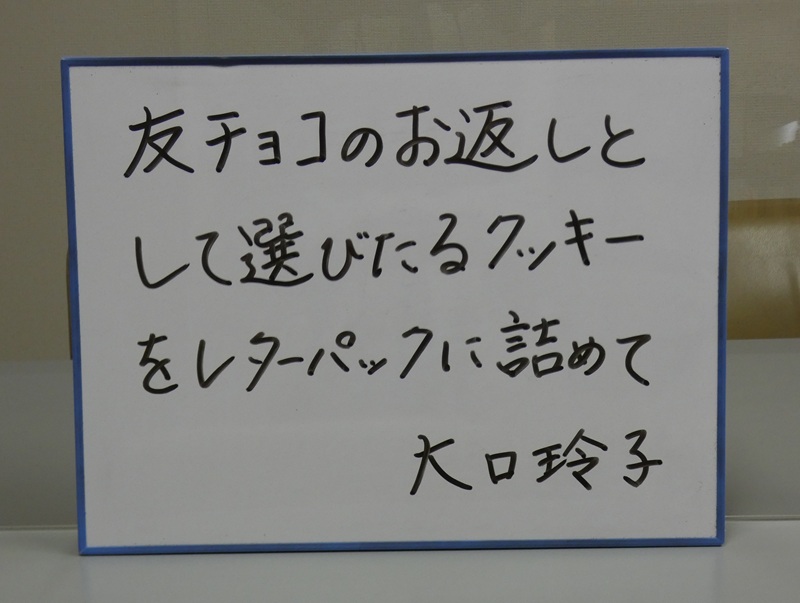 友チョコのお返しと
して選びたるクッキー
をレターパックに詰めて
大口玲子